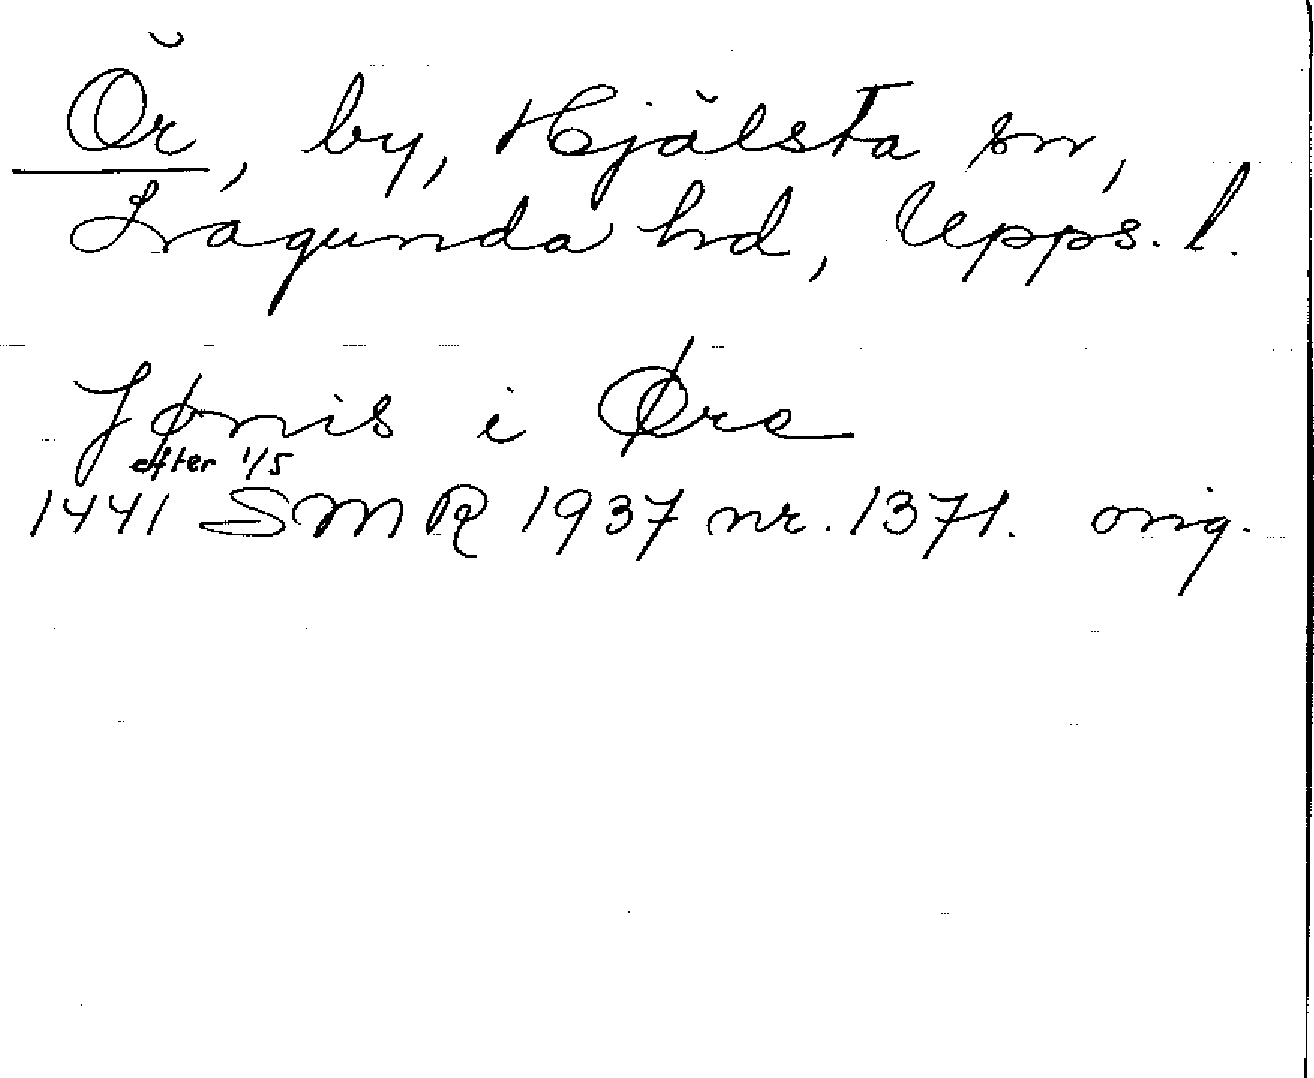 Ör, by, Hjälsta sn,
Lagunda hd, Upps. l.
Jønis i Øre
efter 1/5
1441 SMR 1937 nr. 1371. orig.